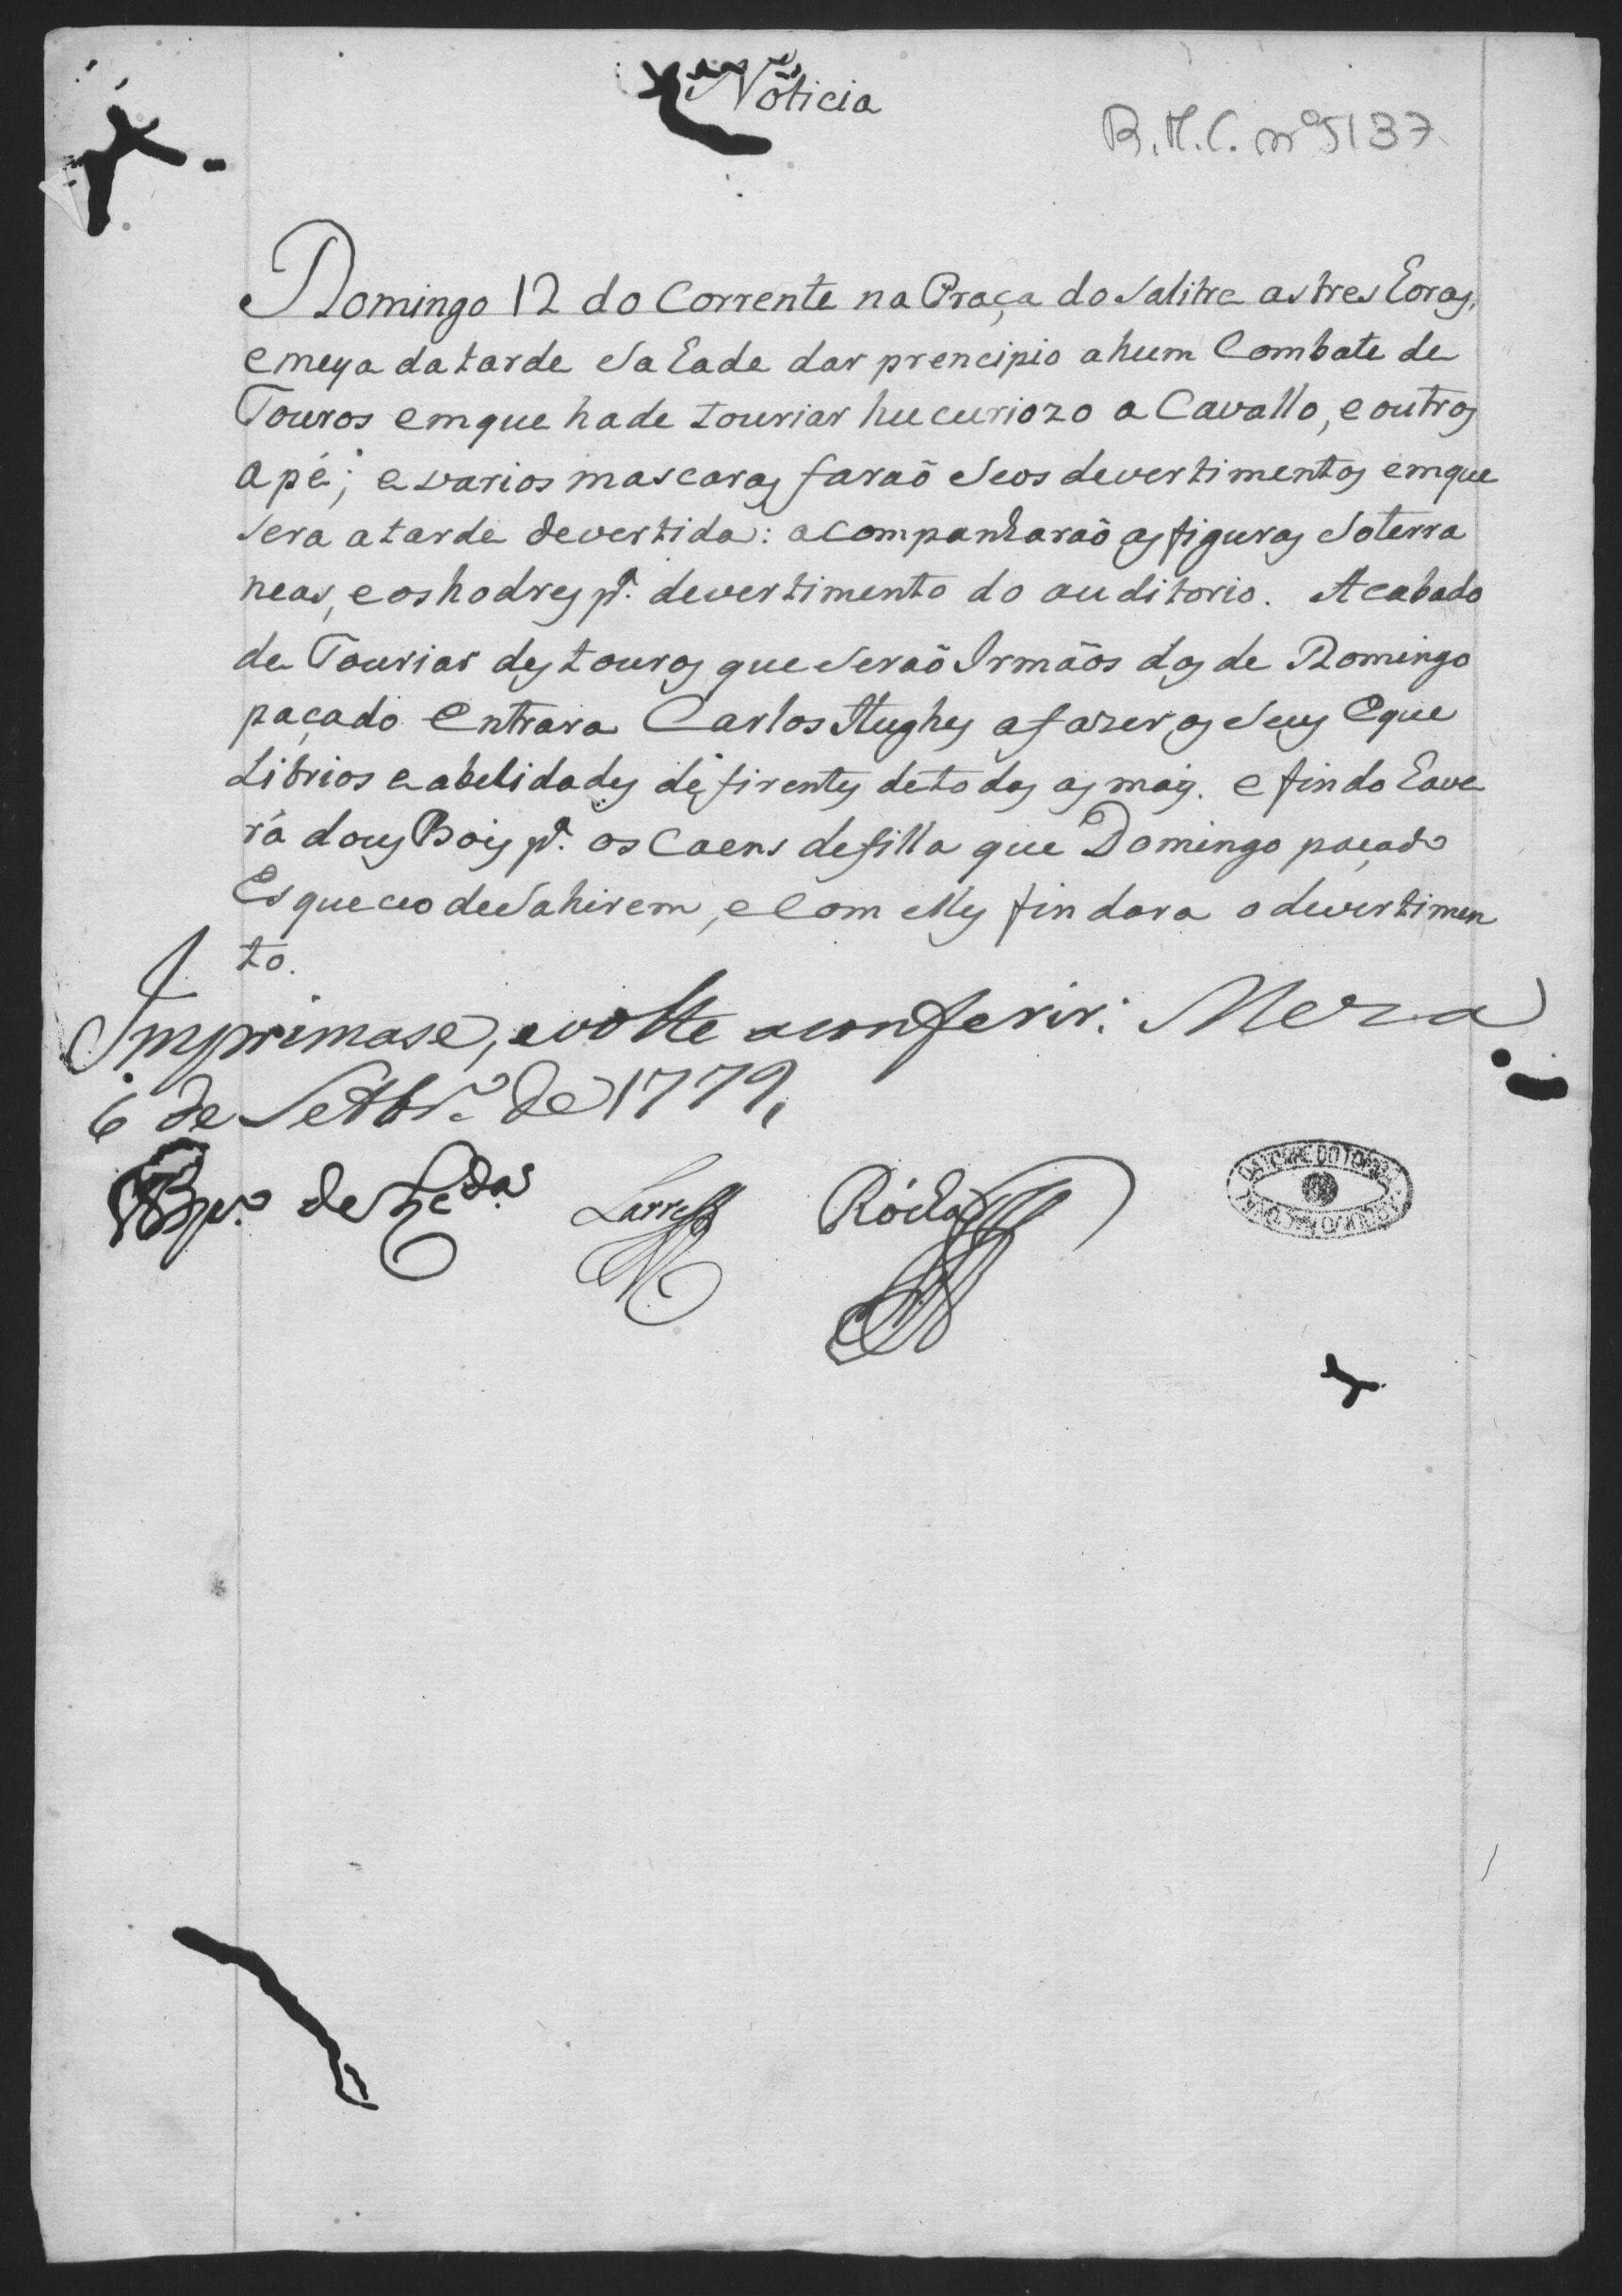 Noticia
R.M.C. nº 5137
Domingo 12 do Corrente na Praça do Salitre as tres Eoras,
e meya da tarde Sa Eade dar prencipio a hum Combate de
Touros em que hade touriar hu curiozo a Cavallo, e outros
a pé; e varios mascaras faraõ Seos devertimentos em que
Sera a tarde devertida: acompanharaõ as figuras Soterra
neas, e os hodres pª. devertimento do auditorio. Acabado
de Touriar des touros que Seraõ Irmãos dos de Domingo
paçado Entrara Carlos Hughes a fazer os Seus Eque
Librios e abelidades defirentes de todas as mais. e findo Eave
rá dous Bois pª. os Caens de filla que Domingo paçado
Esqueceo de Sahirem, e Com elles findara o devertimen
to.
Imprimase, e volte a conferir. Meza
6 de Settbrº. de 1779,
Bpo. de
Rocha
DA TORRE DO TOMBO
ARQUIVO NACIONAL